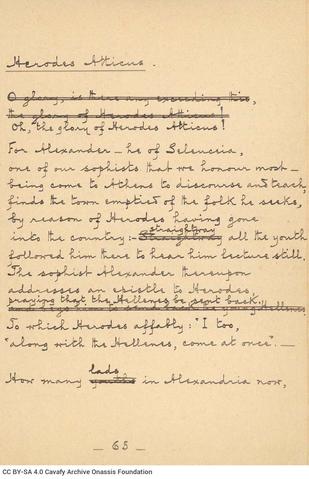 Herodes Atticus.
O glory, is there any exceeding this,
the glory of Herodes Atticus!
Oh, the glory of Herodes Atticus!
For Alexander — he of Seleuceia,
one of our sophists that we honour most —
being come to Athens to discourse and teach,
finds the town emptied of the folk he seeks,
by reason of Herodes having gone
straightway
into the country:— all the youth
followed him there to hear him lecture still.
The sophist Alexander thereupon
addresses an epistle to Herodes,
praying that the Hellenes be sent back.
Hellenes
To which Herodes affably: "I too,
"along with the Hellenes, come at once". —
lads
How many in Alexandria now,
— 65 —
CC BY-SA 4.0 Cavafy Archive Onassis Foundation